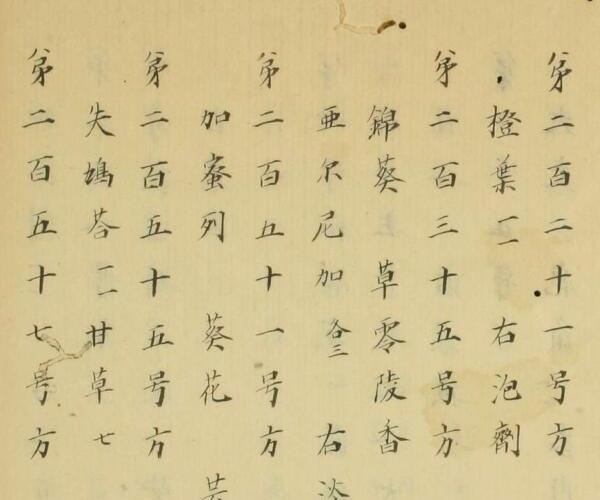 第二百二十一号方
橙葉 二 右泡劑
第二百三十五号方
錦葵 草零陵香
亜尔尼加 各三 右淡
第二百五十一号方
加蜜列 葵花
第二百五十五号方
失鳩荅 甘草 七
第二百五十七号方